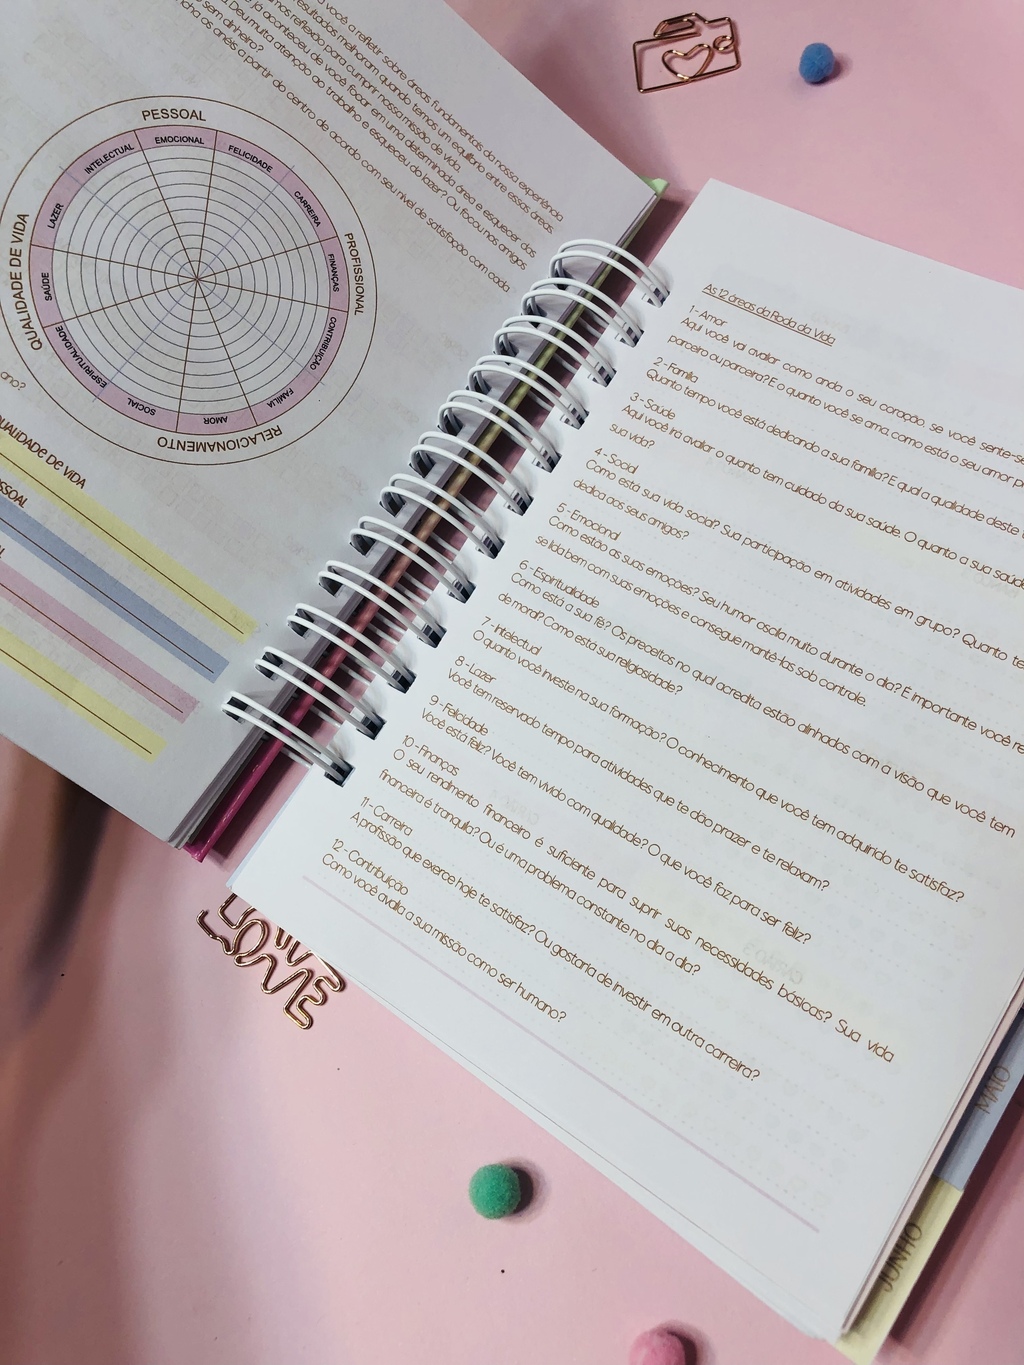 você a refletir sobre áreas fundamentais da nossa experiência
resultados melhoram quando temos um equilíbrio entre essas áreas.
reflexão para cumprir nossa missão de vida.
já aconteceu de você focar em uma determinada área e esquecer das
Deu muita atenção ao trabalho e esqueceu do lazer? Ou focou nos amigos
sem dinheiro?
os anéis a partir do centro de acordo com seu nível de satisfação com cada
PESSOAL
INTELECTUAL
EMOCIONAL
FELICIDADE
PROFISSIONAL
CARREIRA
FINANÇAS
CONTRIBUIÇÃO
RELACIONAMENTO
FAMÍLIA
AMOR
SOCIAL
QUALIDADE DE VIDA
ESPIRITUALIDADE
SAÚDE
LAZER
ano?
QUALIDADE DE VIDA
As 12 áreas da Roda da Vida
1 - Amor
Aqui você vai avaliar como anda o seu coração, se você sente-se
parceiro ou parceira? E o quanto você se ama, como está o seu amor
2 - Família
Quanto tempo você está dedicando a sua família? E qual a qualidade deste
3 - Saúde
Aqui você irá avaliar o quanto tem cuidado da sua saúde. O quanto a sua saúde
sua vida?
4 - Social
Como está sua vida social? Sua participação em atividades em grupo? Quanto
dedica aos seus amigos?
5 - Emocional
Como estão as suas emoções? Seu humor oscila muito durante o dia? É importante você
se lida bem com suas emoções e consegue mantê-las sob controle.
6 - Espiritualidade
Como está a sua fé? Os preceitos no qual acredita estão alinhados com a visão que você tem
de moral? Como está sua religiosidade?
7 - Intelectual
O quanto você investe na sua formação? O conhecimento que você tem adquirido te satisfaz?
8 - Lazer
Você tem reservado tempo para atividades que te dão prazer e te relaxam?
9 - Felicidade
Você está feliz? Você tem vivido com qualidade? O que você faz para ser feliz?
10 - Finanças
O seu rendimento financeiro é suficiente para suprir suas necessidades básicas? Sua vida
financeira é tranquila? Ou é uma problema constante no dia a dia?
11 - Carreira
A profissão que exerce hoje te satisfaz? Ou gostaria de investir em outra carreira?
12 - Contribuição
Como você avalia a sua missão como ser humano?
MAIO
JUNHO
LOVE